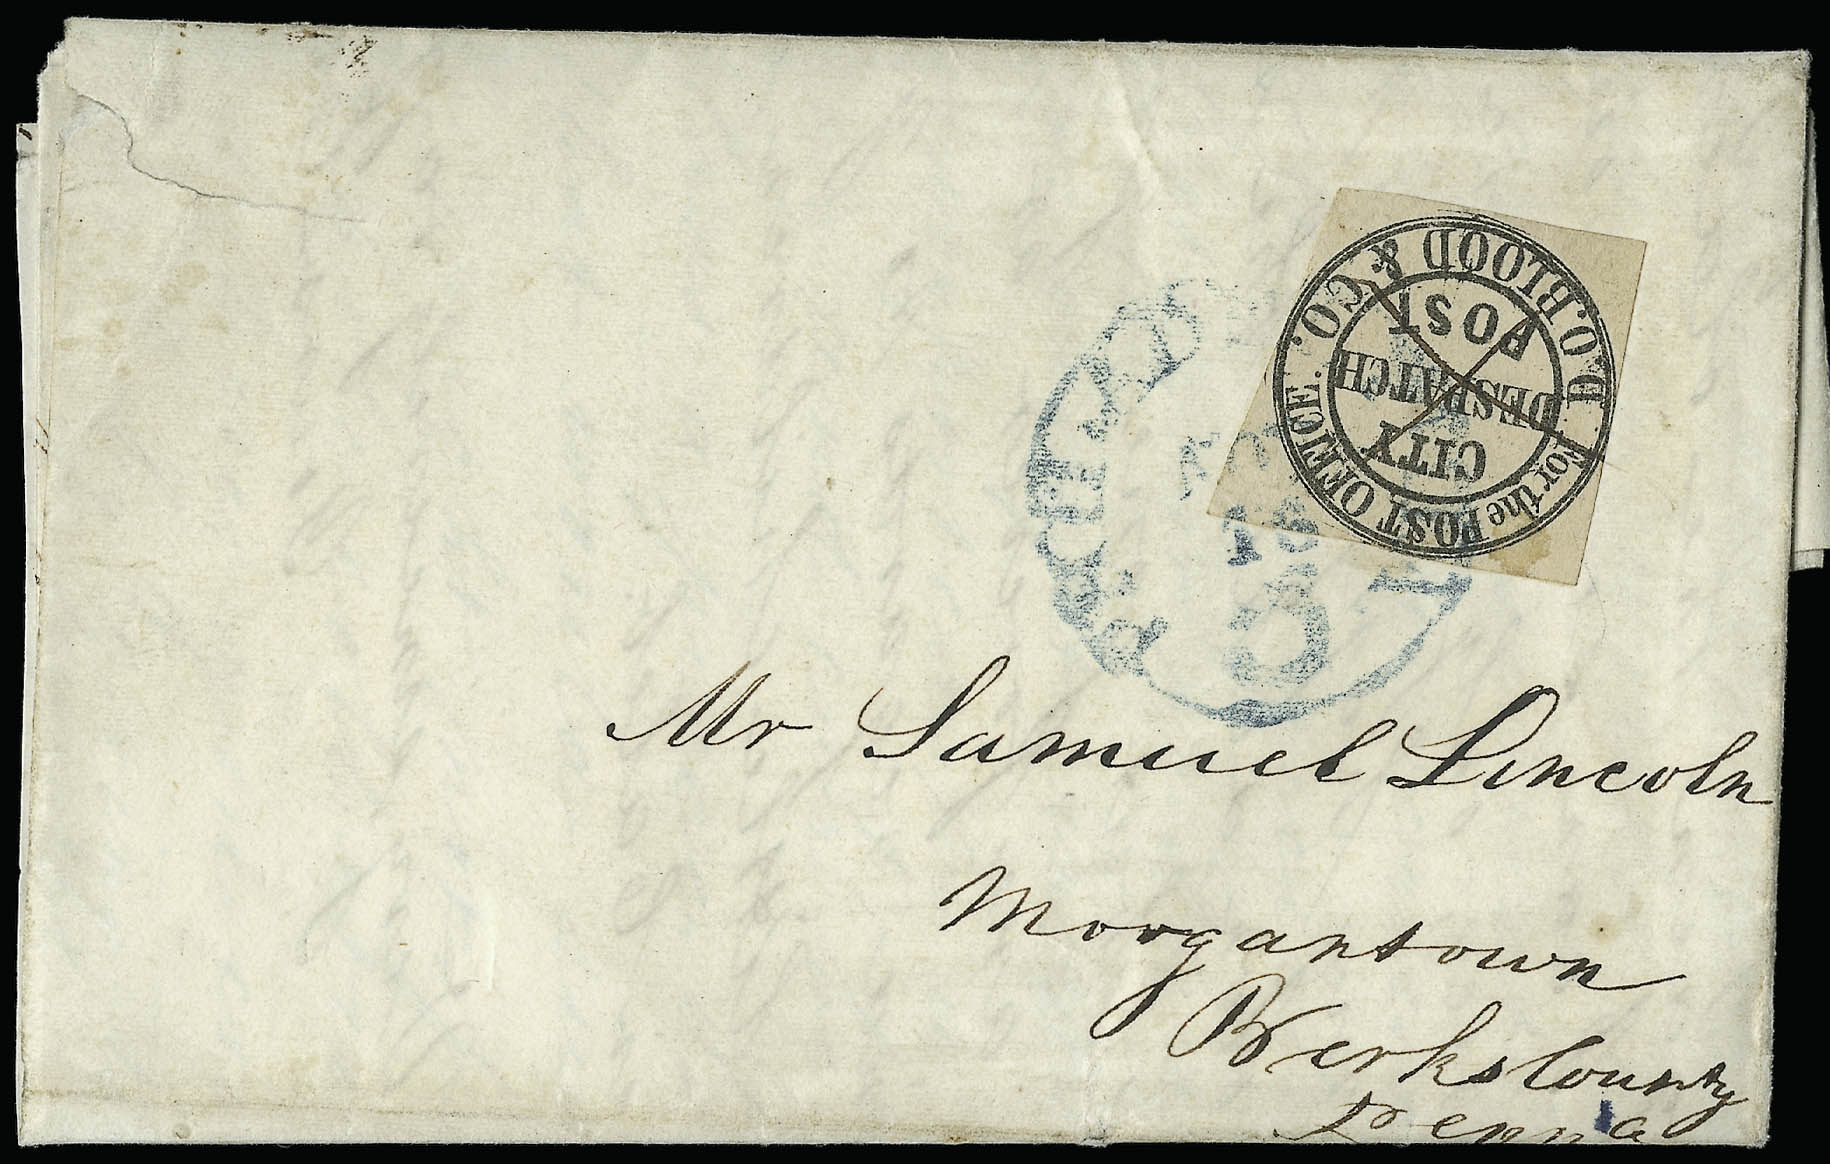 D.O. BLOOD & CO.
For the POST OFFICE.
CITY
DESPATCH
POST
5
Mr Samuel Lincoln
Morgantown
Berks County
Penna